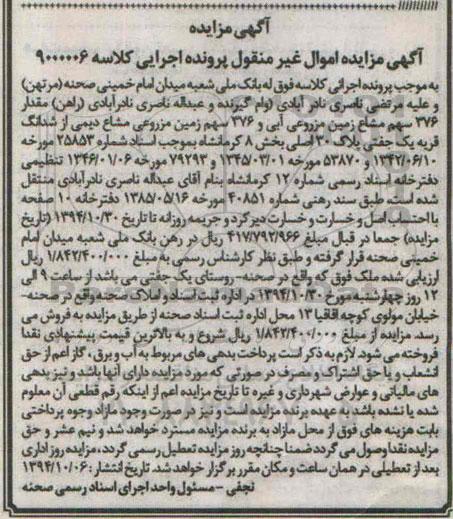 آگهی مزایده
آگهی مزایده اموال غیر منقول پرونده اجرایی کلاسه ۹۰۰۰۰۰۶
به موجب پرونده اجرائی کلاسه فوق له بانک ملی شعبه میدان امام خمینی صحنه (مرتهن)
و علیه مرتضی ناصری نادر آبادی (وام گیرنده و عبداله ناصری نادرآبادی (راهن) مقدار
۳۷۶ سهم مشاع زمین مزروعی آبی و ۳۷۶ سهم زمین مزروعی مشاع دیمی از ششدانگ
قریه یک جفتی پلاک ۳۰ اصلی بخش ۸ کرمانشاه بموجب اسناد شماره ۲۵۸۵۳ مورخه
۱۳۴۲/۰۶/۱۰ و ۵۳۸۷۰ مورخه ۱۳۴۵/۰۳/۰۱ و ۷۹۲۹۳ مورخه ۱۳۴۶/۰۱/۰۶ تنظیمی
دفترخانه اسناد رسمی شماره ۱۲ کرمانشاه بنام آقای عبداله ناصری نادرآبادی منتقل
شده است، طبق سند رهنی شماره ۴۰۸۵۱ مورخه ۱۳۸۵/۰۵/۱۶ دفترخانه ۱۰ صفحه
با احتساب اصل و خسارت و خسارت دیرکرد و جریمه روزانه تا تاریخ ۱۳۹۴/۱۰/۳۰ (تاریخ
مزایده) جمعا در قبال مبلغ ۴۱۷/۷۹۲/۹۶۶ ریال در رهن بانک ملی شعبه میدان امام
خمینی صحنه قرار گرفته و طبق نظر کارشناس رسمی به مبلغ ۱/۸۴۲/۴۰۰/۰۰۰ ریال
ارزیابی شده ملک فوق که واقع در صحنه- روستای یک جفتی می باشد از ساعت ۹ الی
۱۲ روز چهارشنبه مورخ ۱۳۹۴/۱۰/۳۰ در اداره ثبت اسناد و املاک صحنه واقع در صحنه-
خیابان مولوی کوچه اقاقیا ۱۳ محل اداره ثبت اسناد صحنه از طریق مزایده به فروش می
رسد. مزایده از مبلغ ۱/۸۴۲/۴۰۰/۰۰۰ ریال شروع و به بالاترین قیمت پیشنهادی نقدا
فروخته می شود. لازم به ذکر است پرداخت بدهی های مربوط به آب و برق، گاز اعم از حق
انشعاب و یا حق اشتراک و مصرف در صورتی که مورد مزایده دارای آنها باشد و نیز بدهی
های مالیاتی و عوارض شهرداری و غیره تا تاریخ مزایده اعم از اینکه رقم قطعی آن معلوم
شده یا نشده باشد به عهده برنده مزایده است و نیز در صورت وجود مازاد وجوه پرداختی
بابت هزینه های فوق از محل مازاد به برنده مزایده مسترد خواهد شد و نیم عشر و حق
مزایده نقدا وصول می گردد ضمنا چنانچه روز مزایده تعطیل رسمی گردد، مزایده روز اداری
بعد از تعطیلی در همان ساعت و مکان مقرر برگزار خواهد شد. تاریخ انتشار: ۱۳۹۴/۱۰/۰۶
نجفی - مسئول واحد اجرای اسناد رسمی صحنه